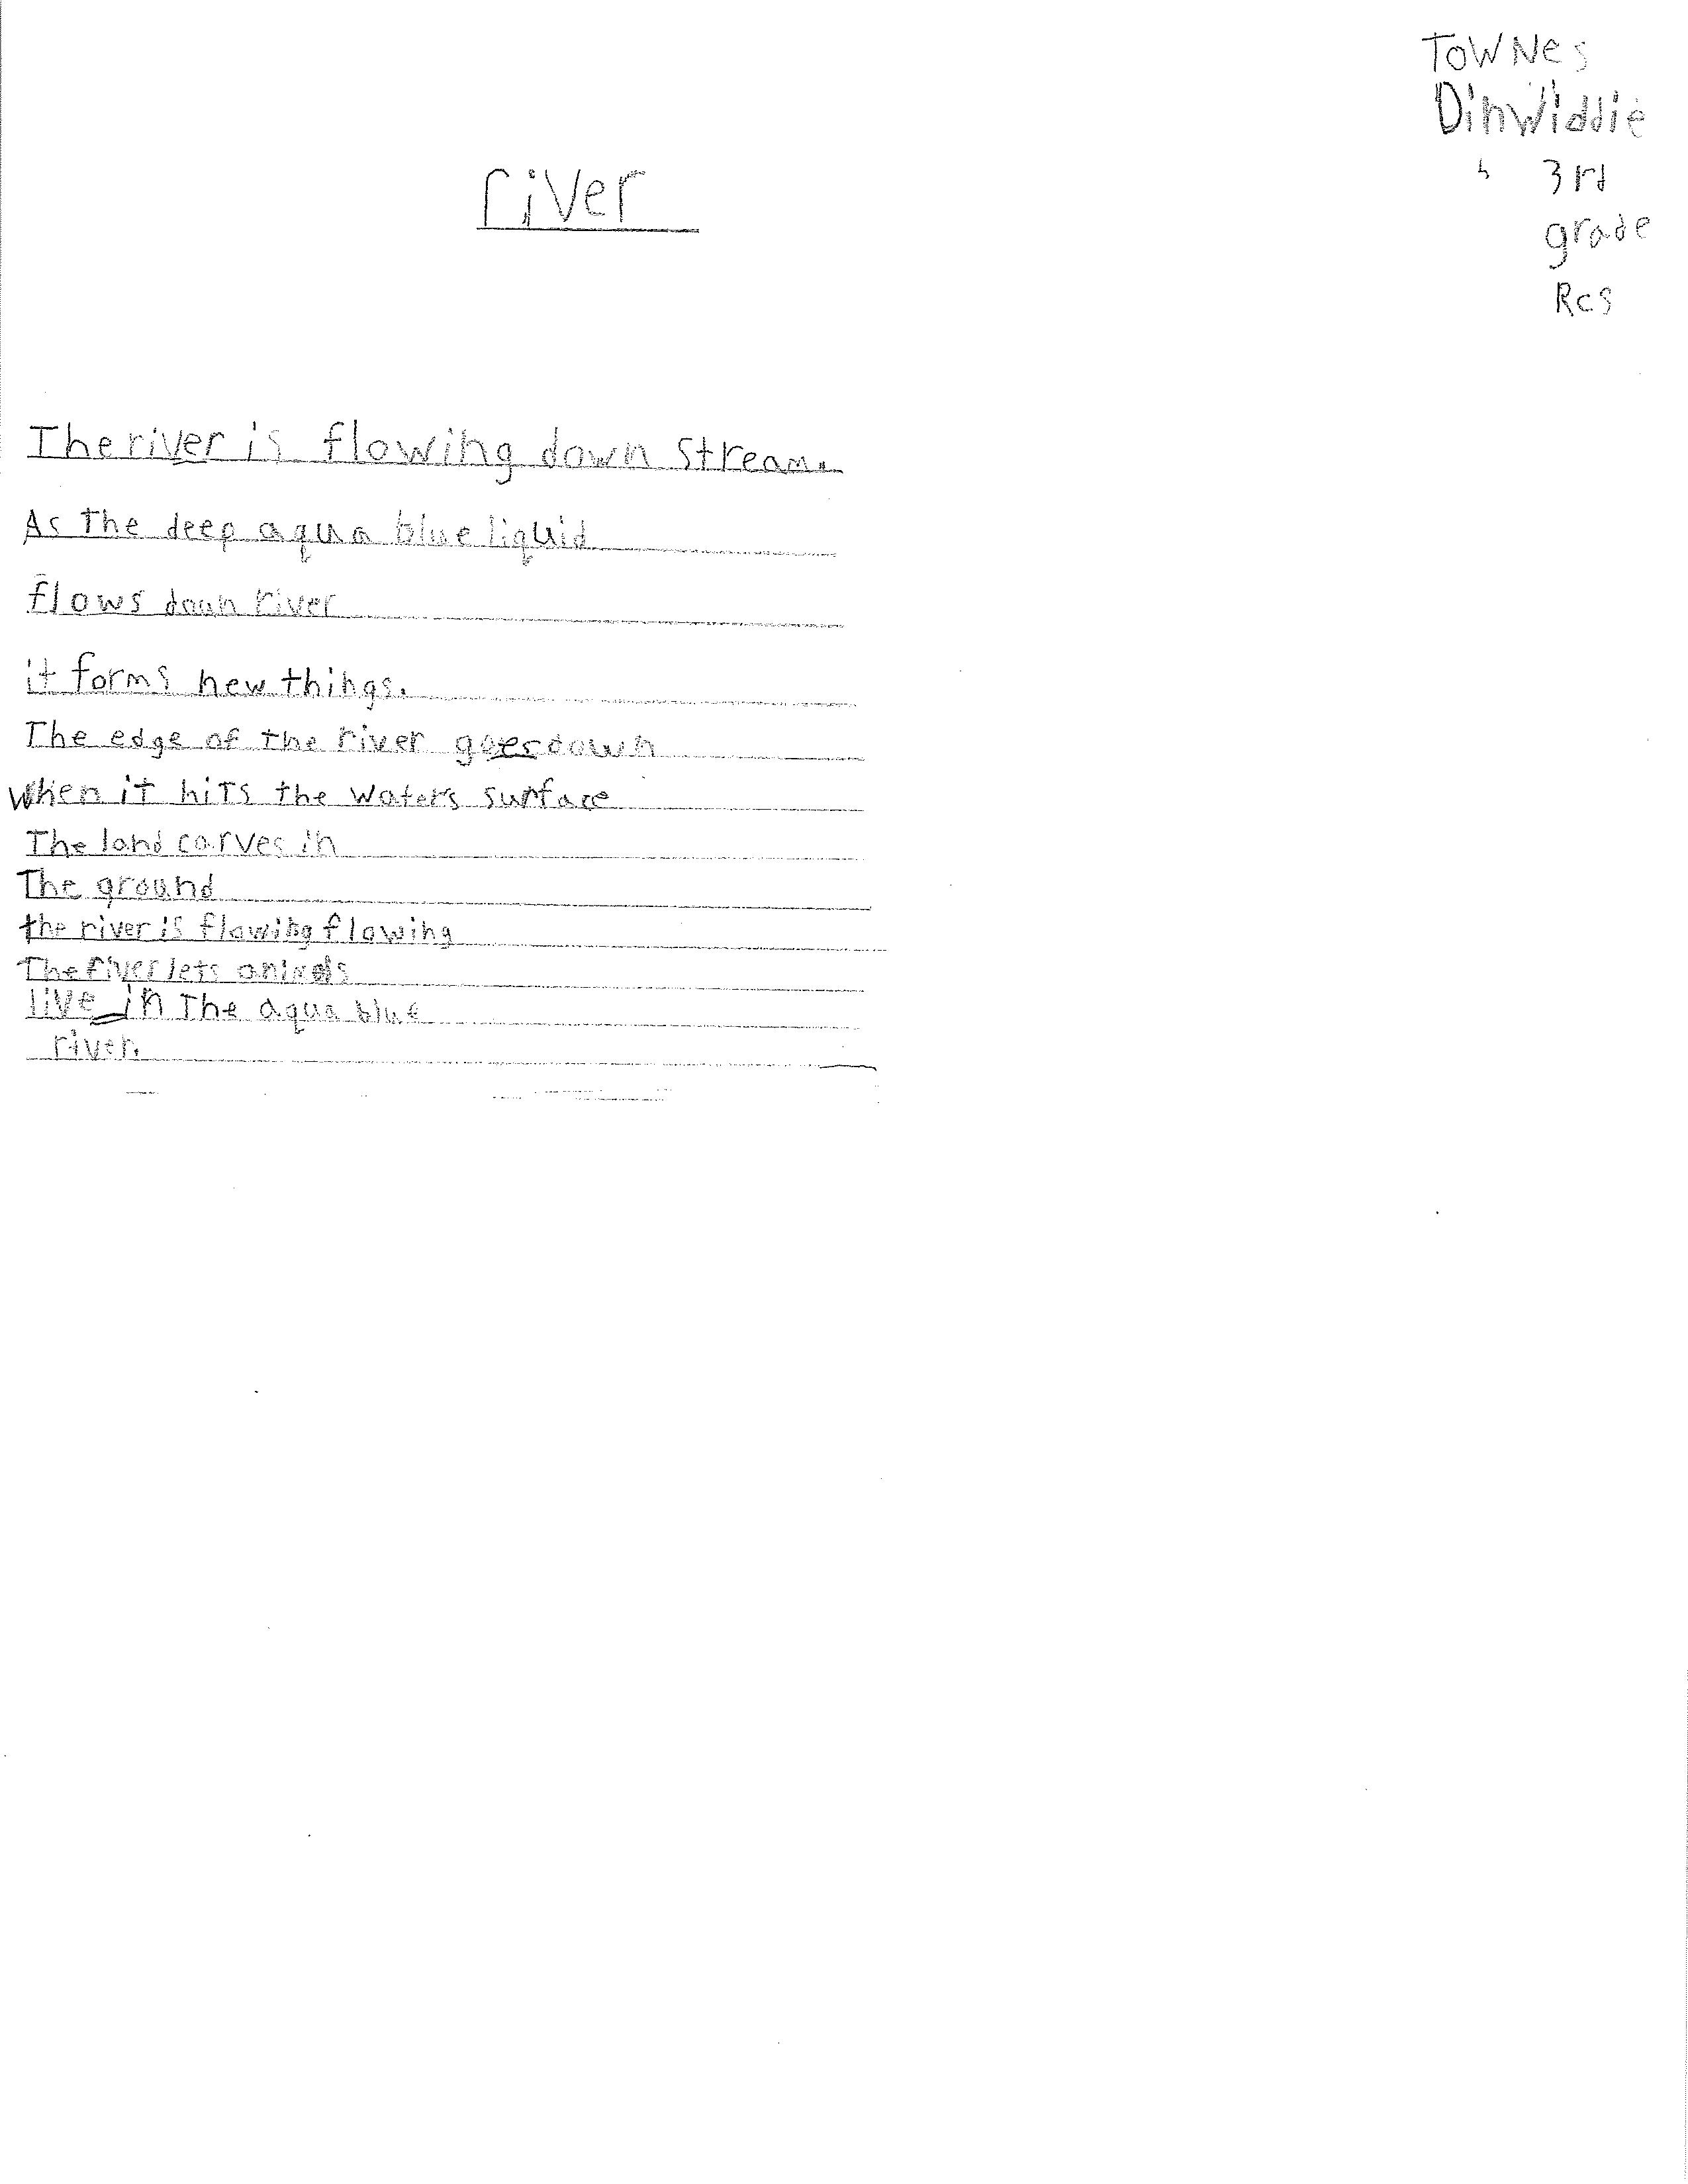 Townes
Dinwiddie
3rd
grade
Rcs
river
The river is flowing down stream.
As The deep aqua blue liquid
flows down river
it forms new things.
The edge of the river goes down
when it hits the waters surface
The land carves in
The ground
the river is flowing flowing
The river lets animals
live in The aqua blue
river.